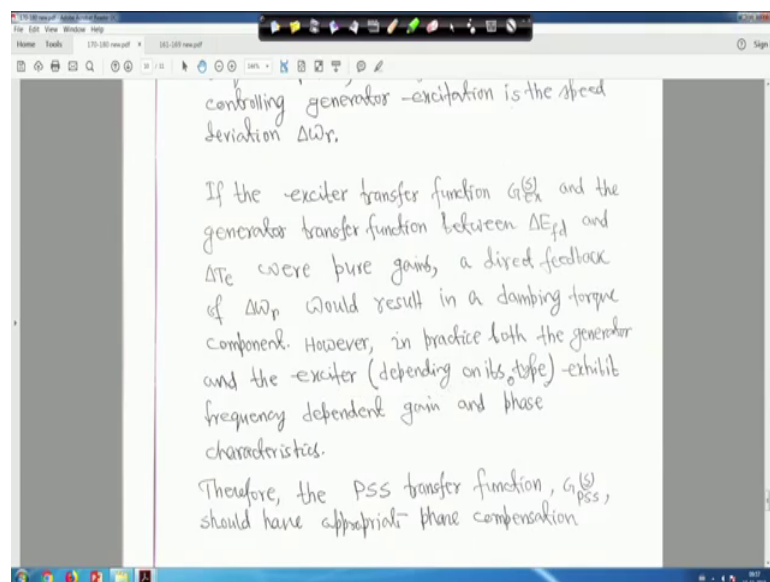 170-180 new.pdf - Adobe Acrobat Reader DC
File Edit View Window Help
Home Tools 170-180 new.pdf x 161-169 new.pdf Sign
controlling generator -excitation is the speed
deviation Δωr.
If the -exciter transfer function Gex(s) and the
generator transfer function between ΔEfd and
ΔTe were pure gains, a direct feedback
of Δωr would result in a damping torque
component. However, in practice both the generator
and the exciter (depending on its type) -exhibit
frequency dependent gain and phase
characteristics.
Therefore, the PSS transfer function, GPSS(s),
should have appropriate phase compensation